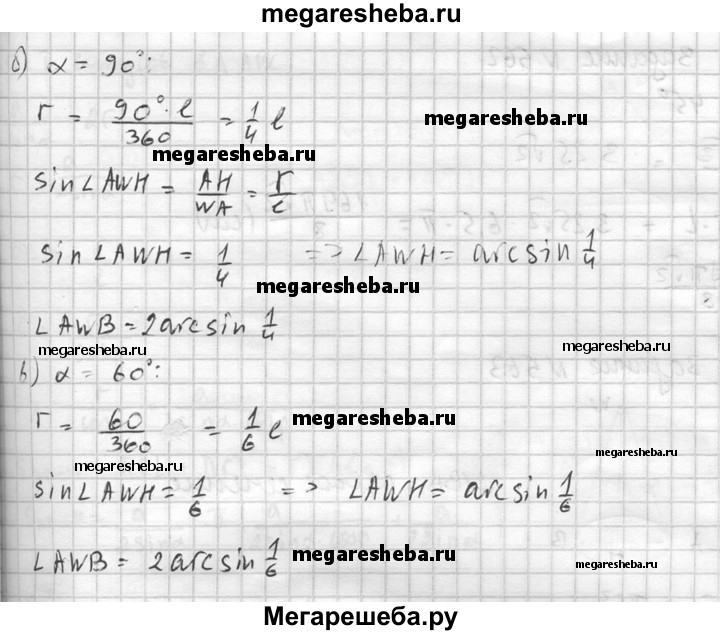 megaresheba.ru
б) α = 90°:
r = 90°·l/360 = 1/4 l
megaresheba.ru
megaresheba.ru
sin∠AWH = AH/WA = r/l
sin∠AWH = 1/4 => ∠AWH = arcsin 1/4
megaresheba.ru
∠AWB = 2arcsin 1/4
megaresheba.ru
megaresheba.ru
в) α = 60°:
r = 60/360 = 1/6 l
megaresheba.ru
megaresheba.ru
megaresheba.ru
sin∠AWH = 1/6 => ∠AWH = arcsin 1/6
∠AWB = 2arcsin 1/6
megaresheba.ru
Мегарешеба.ру